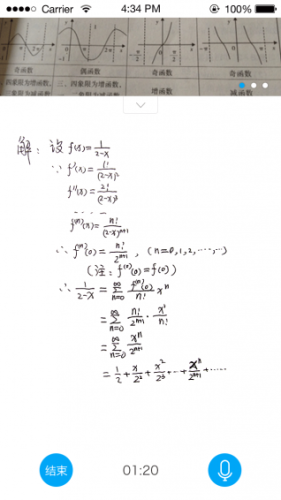 Carrier 4:34 PM 100%
奇函数 偶函数 奇函数 奇函数
四象限为增函数, 增函数 减函数
解: 设 f(x)=1/(2-x)
∵ f'(x)=1!/(2-x)²
f''(x)=2!/(2-x)³
……
f⁽ⁿ⁾(x)=n!/(2-x)ⁿ⁺¹
∴ f⁽ⁿ⁾(0)=n!/2ⁿ⁺¹, (n=0,1,2,……)
(注: f⁽⁰⁾(0)=f(0))
∴ 1/(2-x)=∑_{n=0}^{∞} f⁽ⁿ⁾(0)/n! xⁿ
=∑_{n=0}^{∞} n!/2ⁿ⁺¹·xⁿ/n!
=∑_{n=0}^{∞} xⁿ/2ⁿ⁺¹
=1/2+x/2²+x²/2³+…+xⁿ/2ⁿ⁺¹+……
结束 01:20